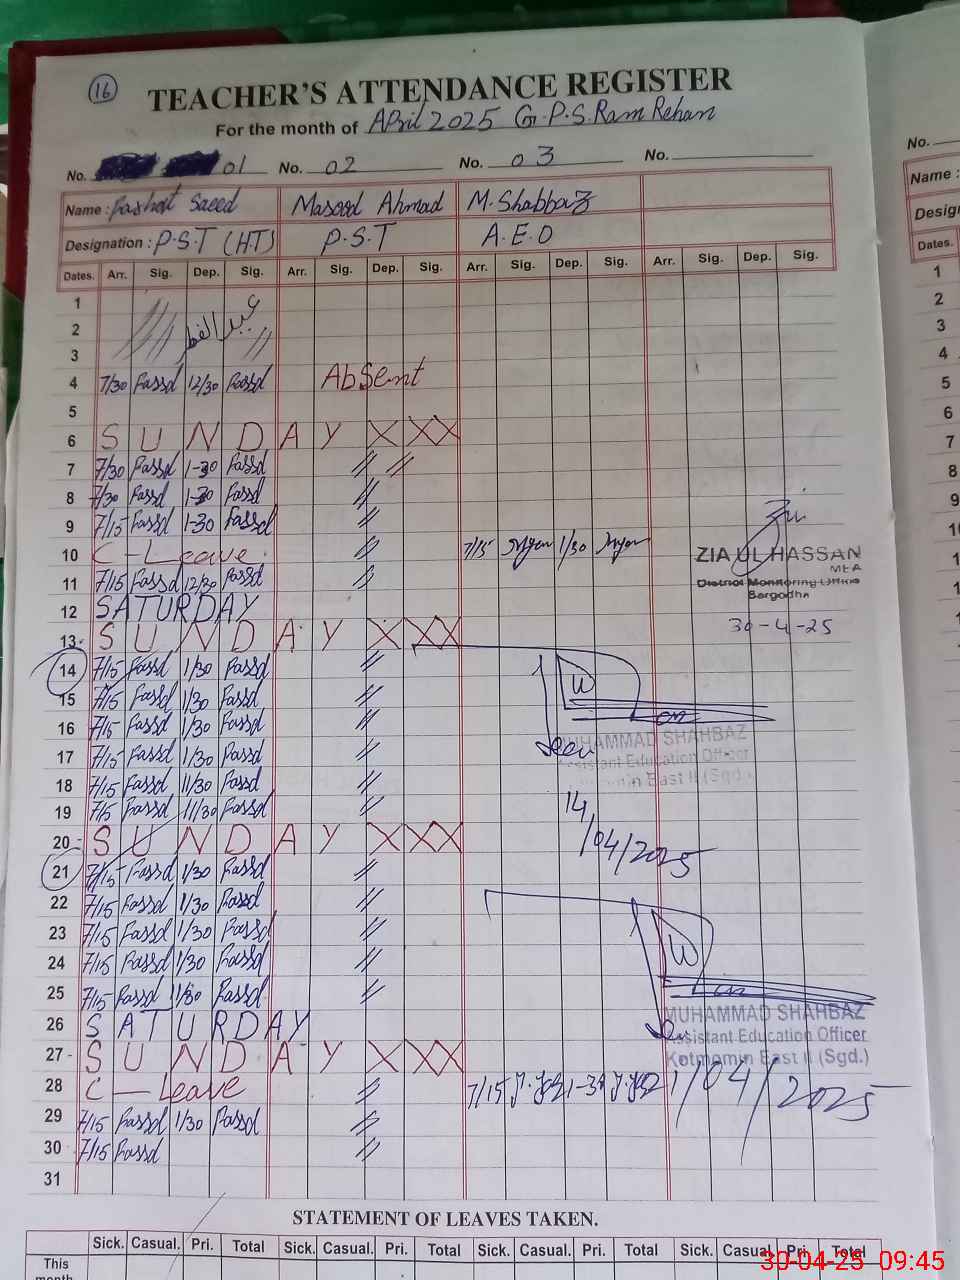 16
TEACHER'S ATTENDANCE REGISTER
For the month of April 2025 G.P.S. Ram Rehan
No. 01 No. 02 No. 03 No.
Name : Saeed Masood Ahmad M. Shabbaz
Designation : P.S.T (H.T) P.S.T A.E.O
Dates. Arr. Sig. Dep. Sig. Arr. Sig. Dep. Sig. Arr. Sig. Dep. Sig. Arr. Sig. Dep. Sig.
1
2 عيد الفطر
3
4 7/30 12/30 Absent
5
6 SUNDAY XXX
7 7/30 1-30 // //
8 7/30 1-30 //
9 7/15 1-30 //
10 C-Leave // 7/15 1/30
ZIA UL HASSAN
MEA
District Monitoring Office
Sargodha
30-4-25
11 7/15 12/30 //
12 SATURDAY
13 SUNDAY XXX
14 7/15 1/30 //
15 7/15 1/30 //
16 7/15 1/30 //
17 7/15 1/30 //
MUHAMMAD SHAHBAZ
Assistant Education Officer
Kotmomin East II (Sgd.)
18 7/15 11/30 //
19 7/15 11/30 //
14/04/2025
20 SUNDAY XXX
21 7/15 1/30 //
22 7/15 1/30 //
23 7/15 1/30 //
24 7/15 1/30 //
25 7/15 1/30 //
MUHAMMAD SHAHBAZ
Assistant Education Officer
Kotmomin East II (Sgd.)
26 SATURDAY
27 SUNDAY XXX
28 C-Leave // 7/15 1-30 /04/2025
29 7/15 1/30 //
30 7/15 //
31
STATEMENT OF LEAVES TAKEN.
Sick. Casual. Pri. Total Sick. Casual. Pri. Total Sick. Casual. Pri. Total Sick. Casual Pri. Total
This
month
30-04-25 09:45
No.
Name :
Dates.
1
2
3
4
5
6
7
8
9